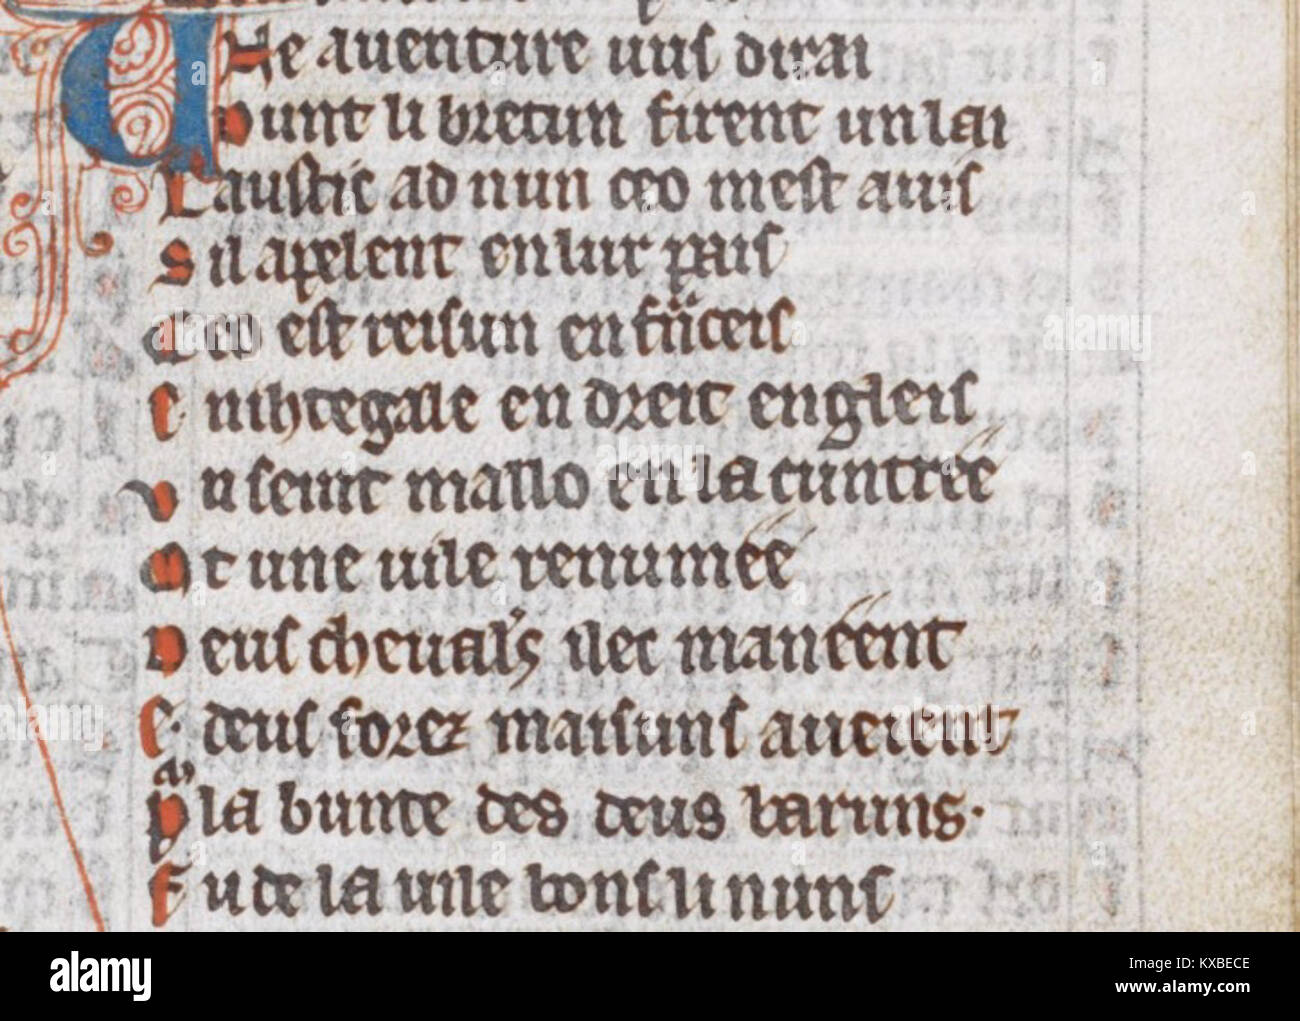 Vne auenture vus dirai
Dunt li bretun firent un lai
Laustic ad nun ceo mest auis
Sil apelent en lur pais
Ceo est reisun en franceis
E nihtegale en dreit engleis
Vn seint mallo en la cuntree
Ot une uile renumee
Deus cheualers ilec maneent
E deus forez maisuns aueient
Pur la bunte des deus baruns.
Fu de la uile bons li nuns
alamy
Image ID: KXBECE
www.alamy.com